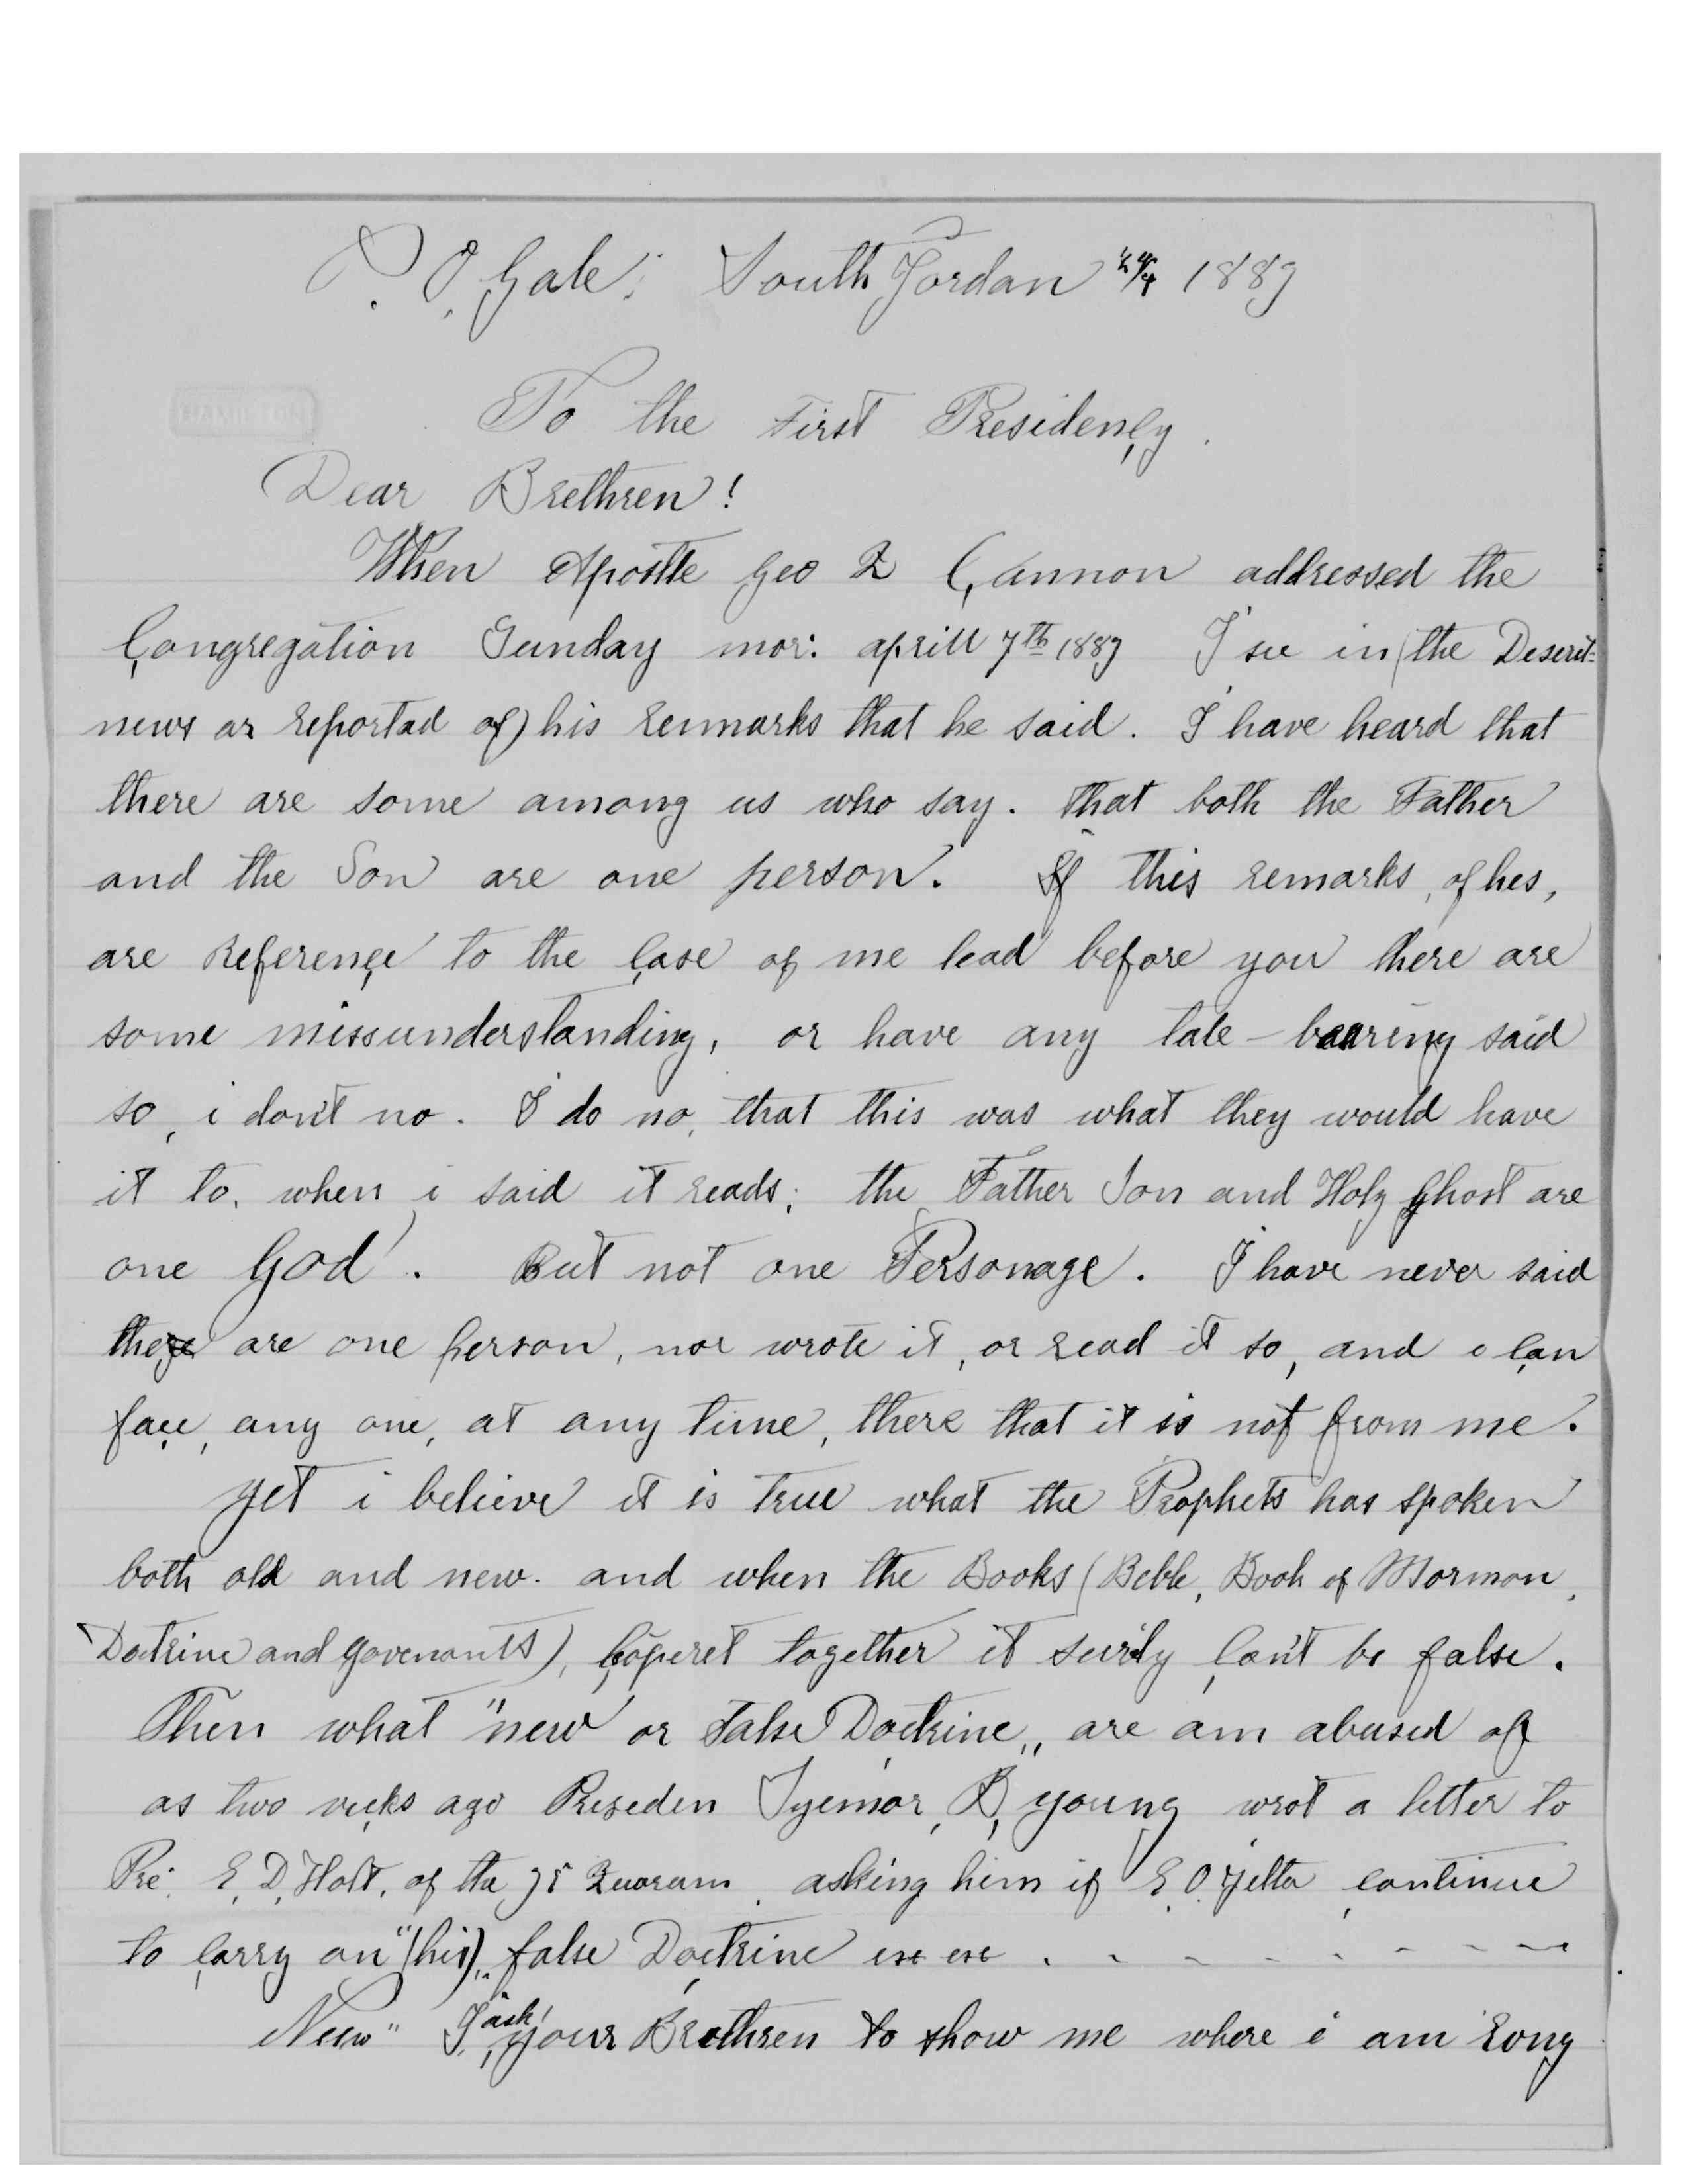 P. O. Gale; South Jordan 24/4 1889
To the First Presidency.
Dear Brethren!
When Apostle Geo Q Cannon addressed the
Congregation Sunday mor: aprill 7th 1889 I see in (the Deseret=
news as reportad of) his remmarks that he said. I have heard that
there are some among us who say. that both the Father
and the Son are one person. If this remarks, of hes,
are Reference to the Case of me lead before you there are
some missunderstanding, or have any tale-baaring said
so, i don't no. I do no, that this was what they would have
it to. when i said it reads; the Father Son and Holy Ghost are
one God. But not one Personage. I have never said
there are one person, nor wrote it, or read it so, and i Can
face, any one, at any time, there that it is not from me.
yet i believe it is true what the Prophets has spoken
both old and new. and when the Books (Beble, Book of Mormon,
Doctrine and Covenants), Coperet together it surily Can't be false.
Then what "new or False Doctrine,, are am abused of
as two weeks ago Preseden Syemor, B, young wrot a letter to
Pre. E. D. Holt. of the 75 Quoram. asking him if E. O. continue
to Carry on "(his),, false Doctrine
New" I, ask, your Brethren to show me where i am rong